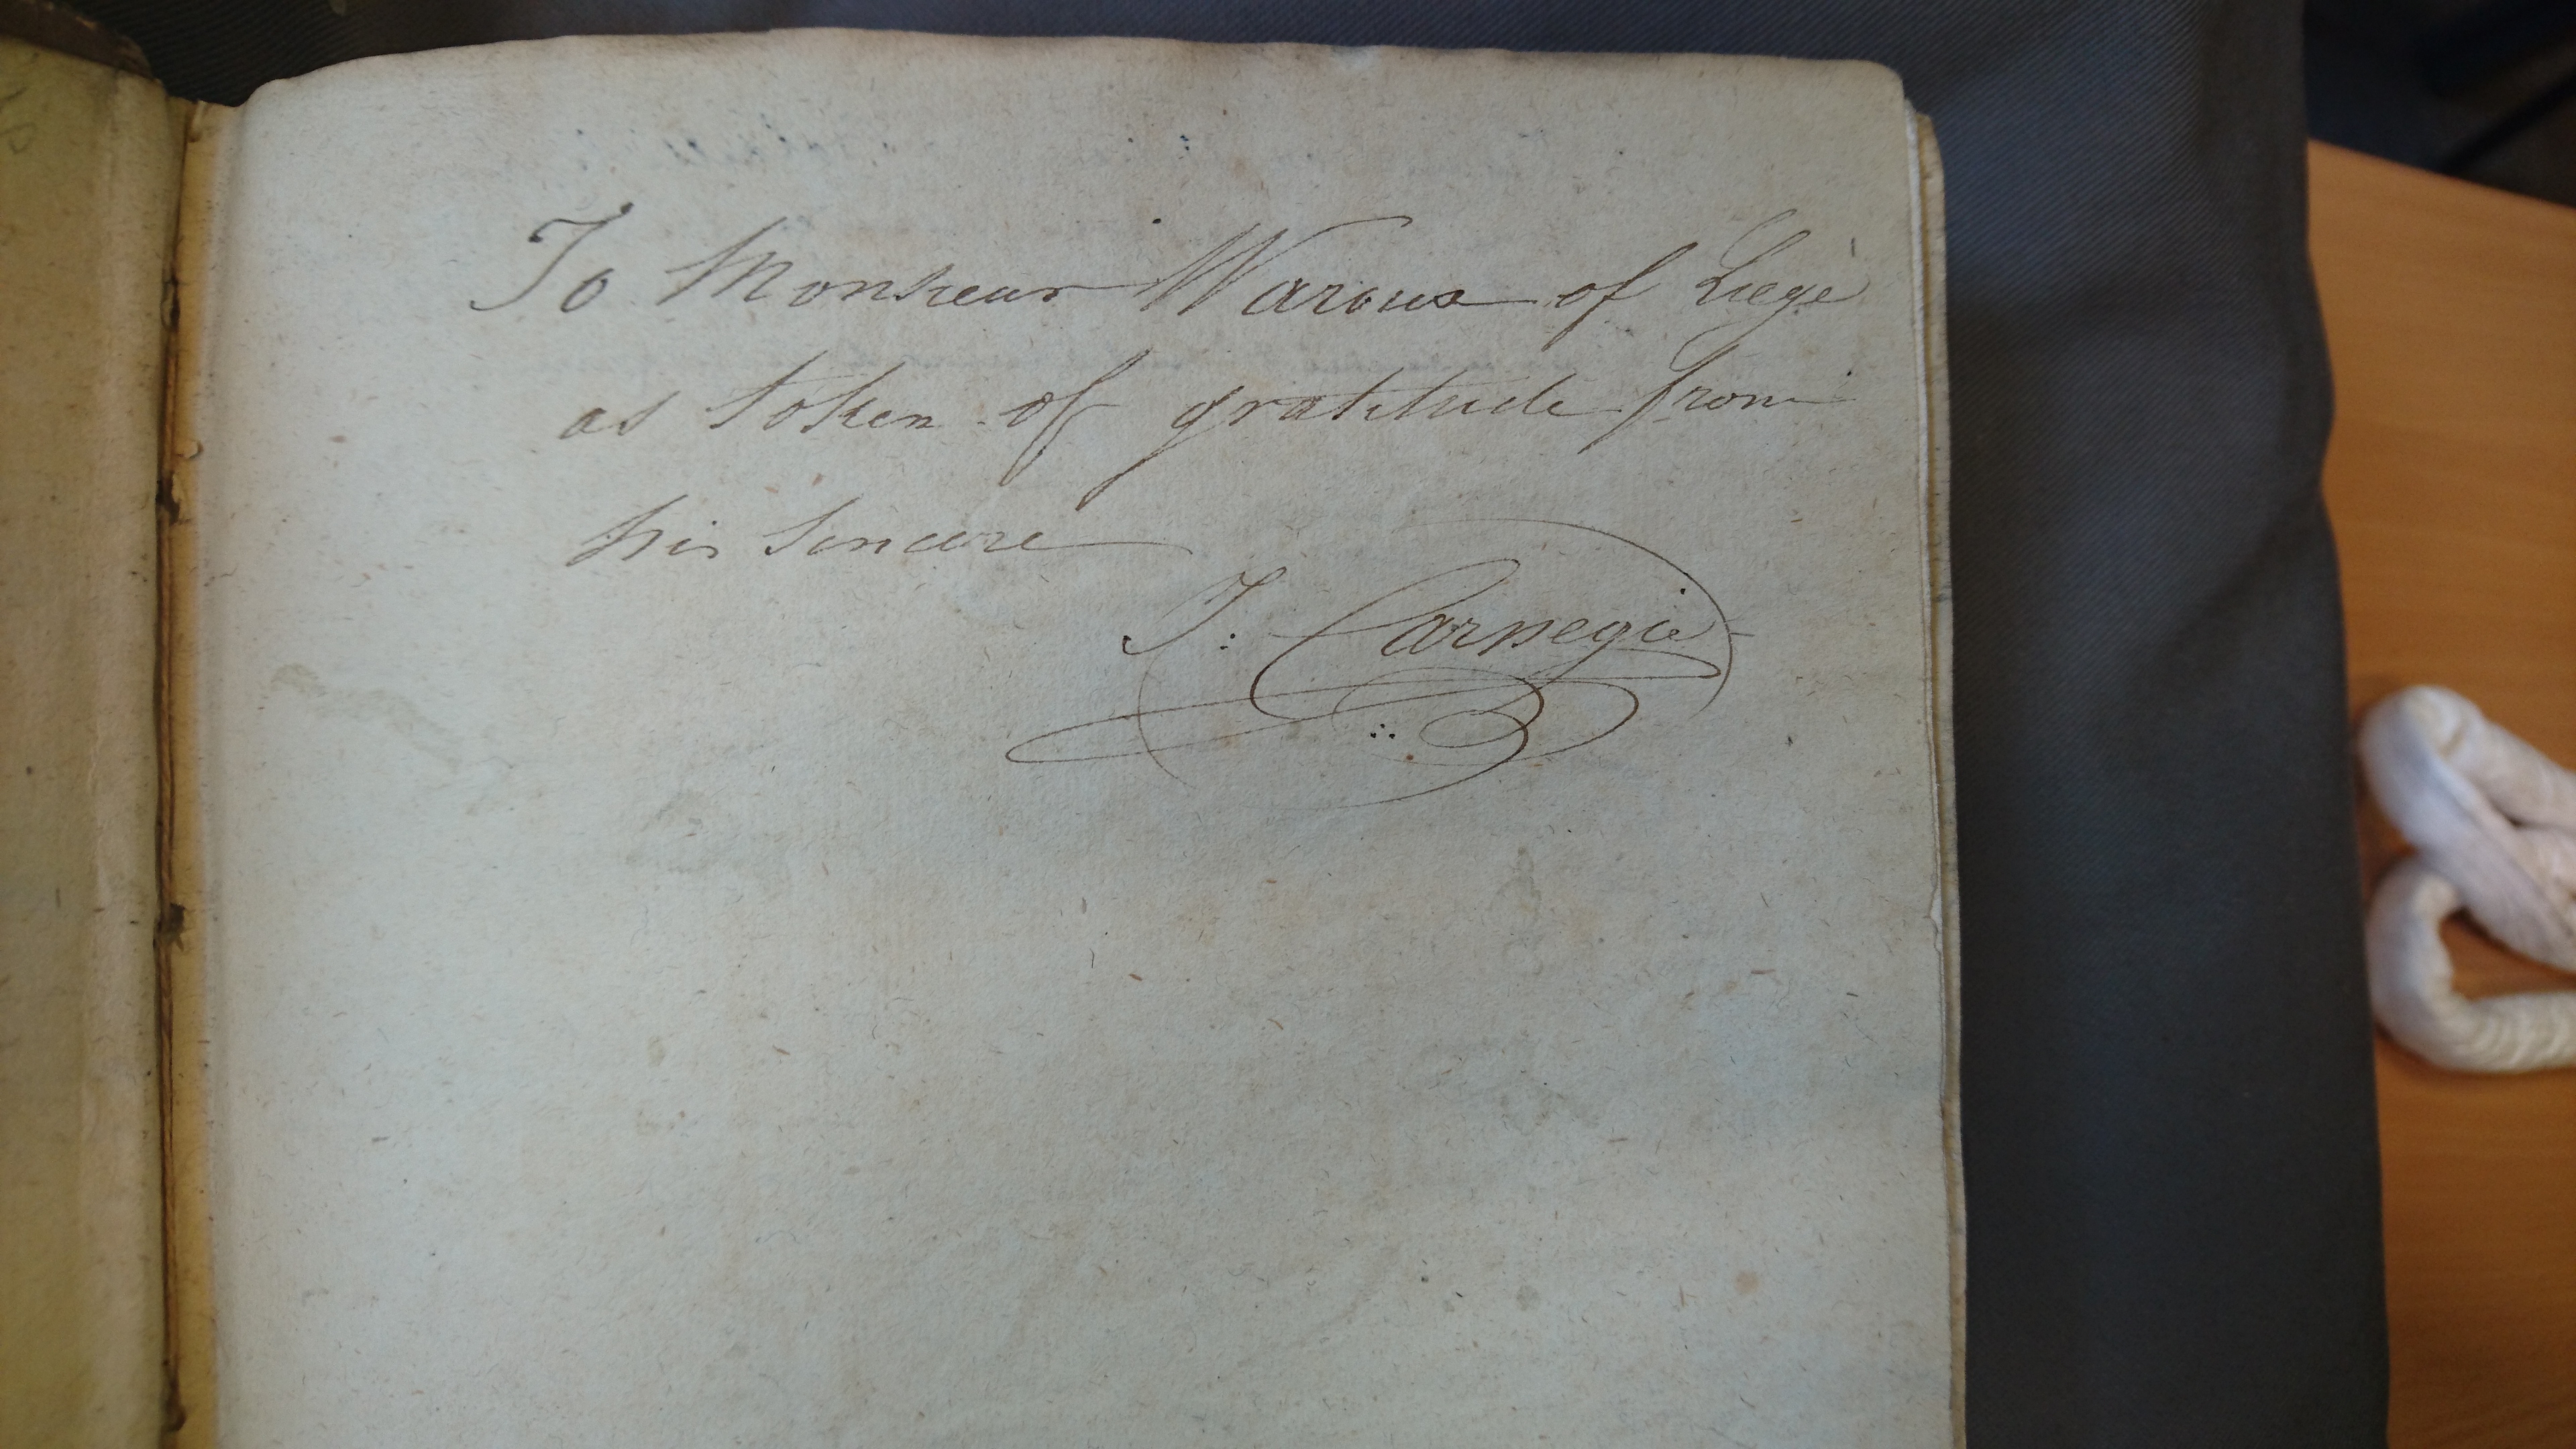 To Monsieur Waroux of Liegè
as token of gratitude from
his sincere
J: Carnegie